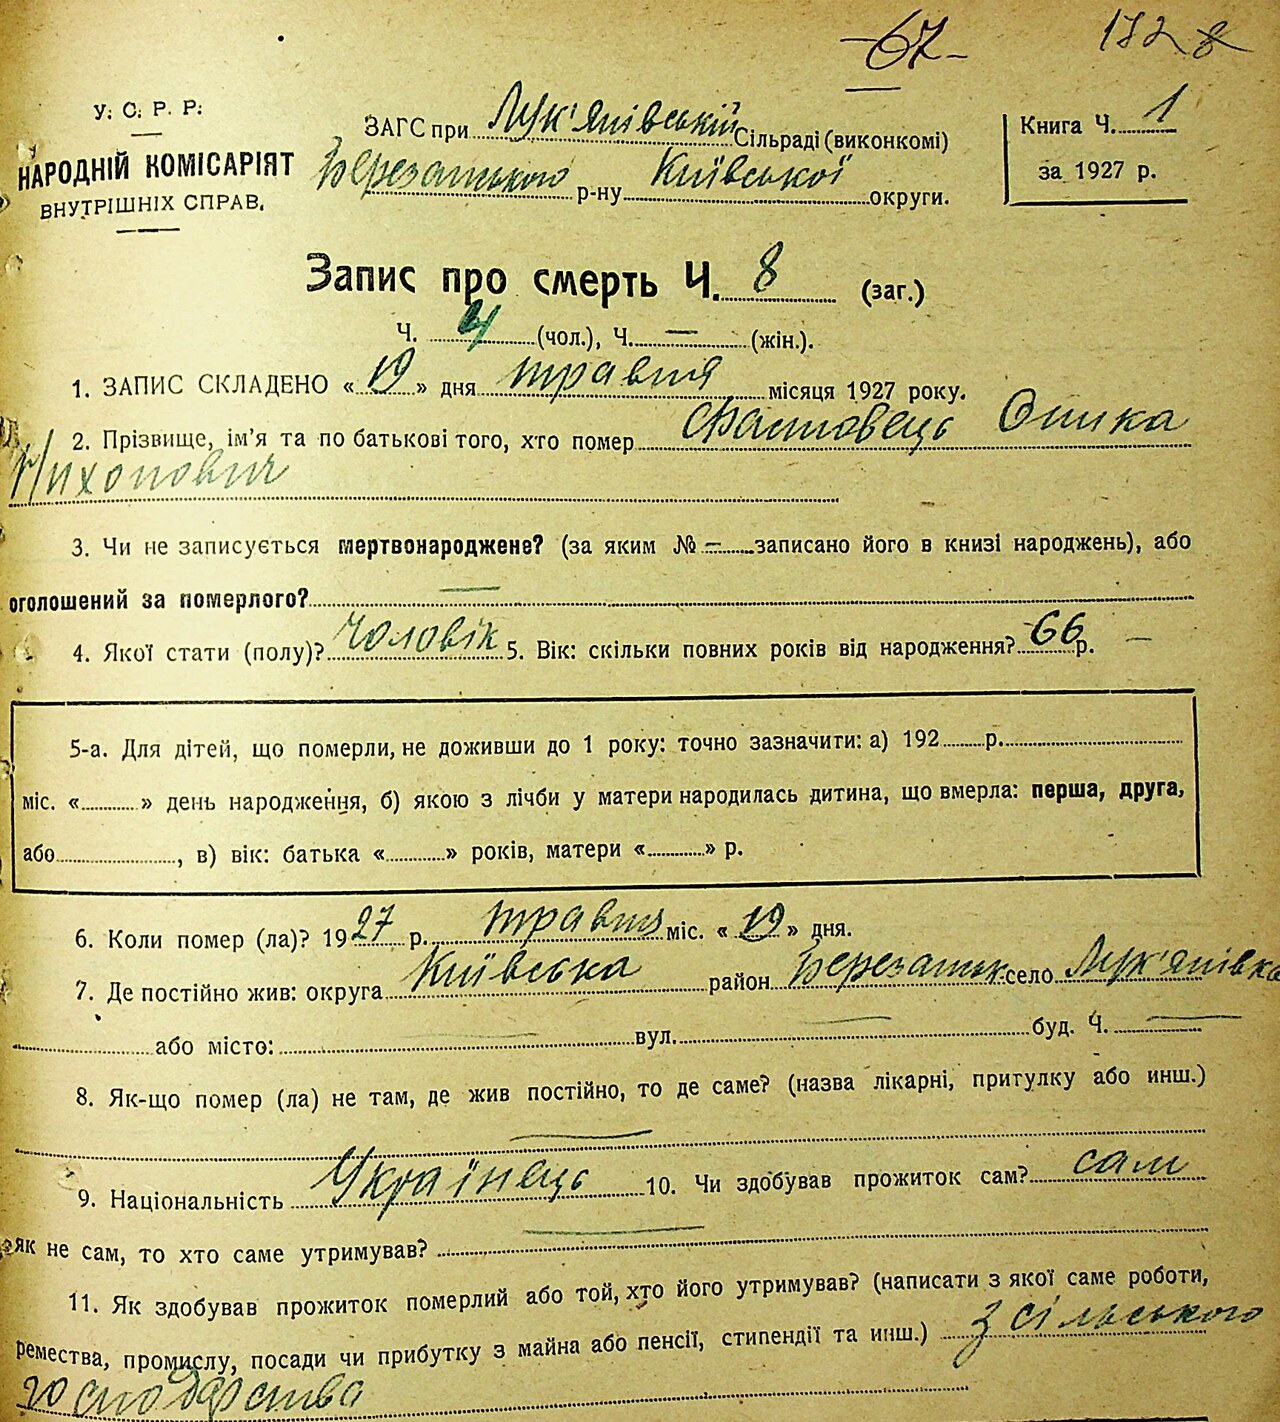 -67- 172
У. С. Р. Р.
НАРОДНІЙ КОМІСАРІЯТ
ВНУТРІШНІХ СПРАВ.
ЗАГС при Лук'янівській Сільраді (виконкомі)
Березанського р-ну Київської округи.
Книга Ч. 1
за 1927 р.
Запис про смерть Ч. 8 (заг.)
Ч. 4 (чол.), Ч. — (жін.).
1. ЗАПИС СКЛАДЕНО «19» дня травня місяця 1927 року.
2. Прізвище, ім'я та по батькові того, хто помер Фастовець Оника
Тихонович
3. Чи не записується мертвонароджене? (за яким № — записано його в книзі народжень), або
оголошений за померлого? —
4. Якої стати (полу)? Чоловік 5. Вік: скільки повних років від народження? 66 р. —
5-а. Для дітей, що померли, не доживши до 1 року: точно зазначити: а) 192 р.
міс. « » день народження, б) якою з лічби у матери народилась дитина, що вмерла: перша, друга,
або , в) вік: батька « » років, матери « » р.
6. Коли помер (ла)? 1927 р. травня міс. «19» дня.
7. Де постійно жив: округа Київська район Березанськ село Лук'янівка
або місто: — вул. — буд. Ч. —
8. Як-що помер (ла) не там, де жив постійно, то де саме? (назва лікарні, притулку або инш.)
—
9. Національність Українець 10. Чи здобував прожиток сам? сам
як не сам, то хто саме утримував? —
11. Як здобував прожиток померлий або той, хто його утримував? (написати з якої саме роботи,
ремества, промислу, посади чи прибутку з майна або пенсії, стипендії та инш.) З сільського
господарства